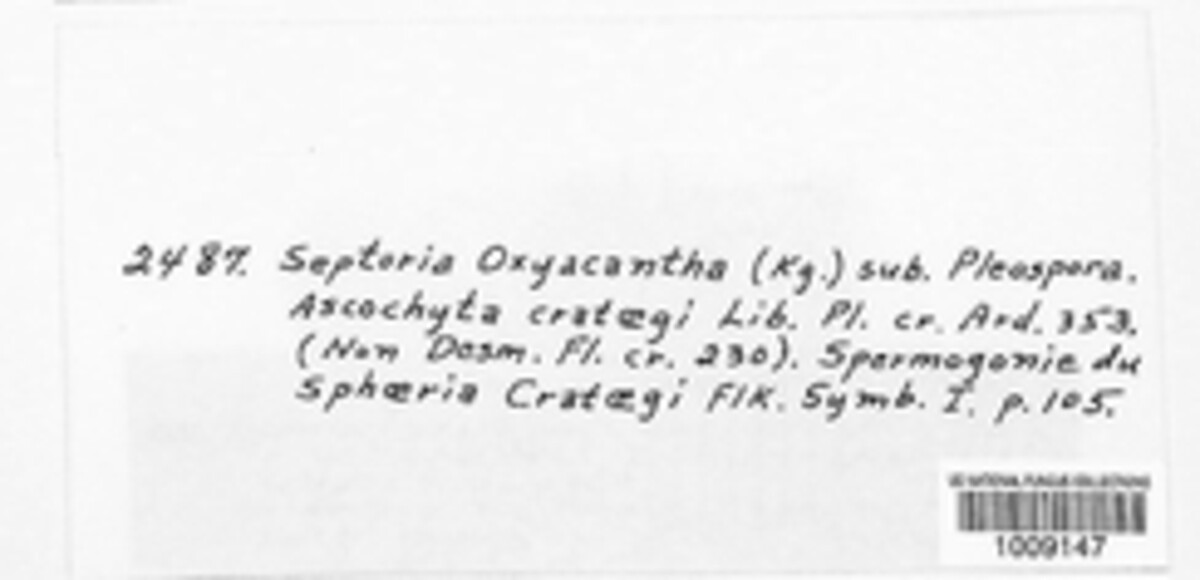 2487. Septoria Oxyacantha (Kg.) sub. Pleospora.
Ascochyta cratægi Lib. Pl. cr. Ard. 353.
(Non Desm. Fl. cr. 230). Spermogonie du
Sphæria Cratægi Flk. Symb. I. p. 105.
US NATIONAL FUNGUS COLLECTIONS
1009147